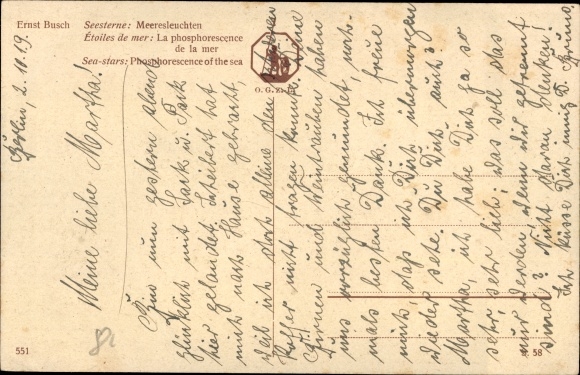 Ernst Busch
Seesterne: Meeresleuchten
Étoiles de mer: La phosphorescence
de la mer
Sea-stars: Phosphorescence of the sea
O. G. Z.-L.
Berlin, 2. 10. 19.
Meine liebe Martha!
Bin nun gestern abend
glücklich mit Sack u. Pack
hier gelandet. Scheibert hat
mich nach Hause gebracht,
weil ich doch alleine den
Koffer nicht tragen konnte. Deine
Birnen und Weintrauben haben
uns vorzüglich gemundet, noch-
mals besten Dank. Ich freue
mich, daß ich Dich übermorgen
wieder sehe. Du Dich auch?
Martha, ich habe Dich ja so
sehr, sehr lieb; was soll das
nur werden, wenn wir getrennt
sind? Nicht daran denken!
Ich küsse Dich innig D. Bruno.
82
551
58